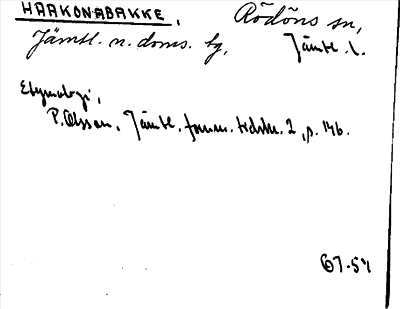 HAAKONABAKKE, Rödöns sn,
Jämtl. n. doms. tg, Jämtl. l.
Etymologi,
P. Olsson, Jämtl. fornm. tidskr. 2, p. 146.
67.54